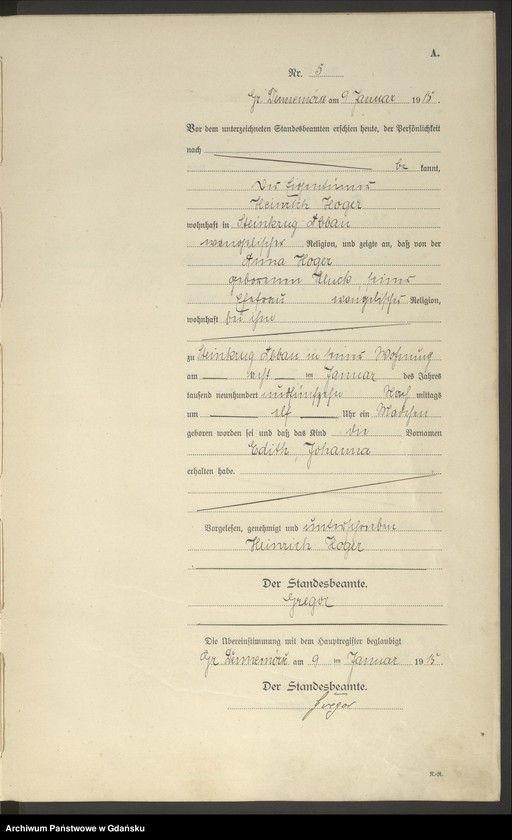 A.
Nr. 5
Gr. am 9 Januar 1915.
Vor dem unterzeichneten Standesbeamten erschien heute, der Persönlichkeit
nach
be kannt,
Der Eigentümer
Heinrich Hoger
wohnhaft in Steinkrug Abbau
evangelischer Religion, und zeigte an, daß von der
Anna Hoger
geborenen Kluck, seiner
Ehefrau evangelischer Religion,
wohnhaft bei ihm
zu Steinkrug Abbau in seiner Wohnung
am acht ten Januar des Jahres
tausend neunhundert undfünfzehn Nach mittags
um elf Uhr ein Mädchen
geboren worden sei und daß das Kind die Vornamen
Edith, Johanna
erhalten habe.
Vorgelesen, genehmigt und unterschrieben
Heinrich Hoger
Der Standesbeamte.
Gregor
Die Übereinstimmung mit dem Hauptregister beglaubigt
Gr. am 9 ten Januar 1915.
Der Standesbeamte.
Gregor
R.-R.
Archiwum Państwowe w Gdańsku